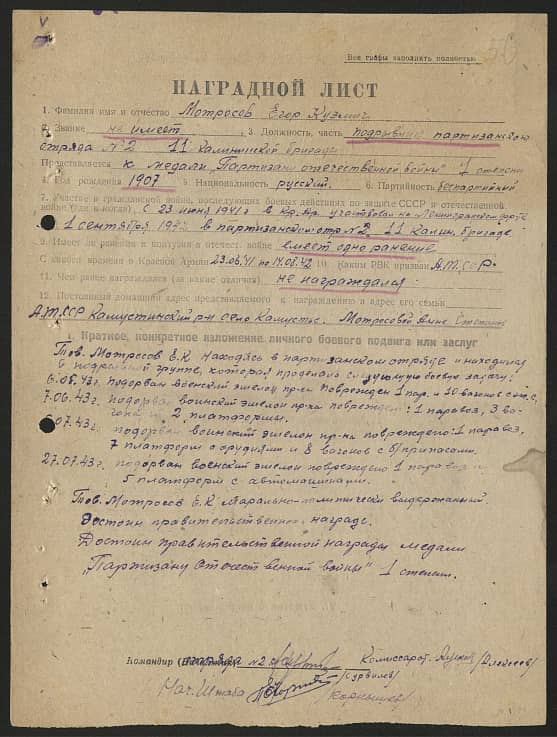 Все графы заполнять полностью
НАГРАДНОЙ ЛИСТ
1. Фамилия имя и отчество Мотросов Егор Кузмич
2. Звание не имеет 3. Должность, часть подрывник партизанского
отряда №2 11 Калининской бригады
Представляется к медали "Партизану отечественной войны" 1 степени
4. Год рождения 1907 5. Национальность русский. 6. Партийность беспартийный
7. Участие в гражданской войне, последующих боевых действиях по защите СССР и отечественной
войне (где и когда) С 23 июня 1941 г в Кр. Ар. участвовал на Ленинградском фронте
1 сентября в партизанском отр №2 11 Калин. бригаде
9. Имеет ли ранения и контузии в отечест. войне имеет одно ранение
С какого времени в Красной Армии 23.06.41 по 10. Каким РВК призван
11. Чем ранее награждался (за какие отличия) не награждался
12. Постоянный домашний адрес представляемого к награждению и адрес его семьи
село Мотросовой Анне
1. Краткое, конкретное изложение личного боевого подвига или заслуг
Тов. Мотросов Е.К находясь в партизанском отряде и находился
в подрывной группе, которая проделала следующую боевую задачу:
6.06.43 г. подорван воинский эшелон пр-ка поврежден 1 пар. и 10 вагонов
7.06.43 г. подорван воинский эшелон пр-ка поврежден: 1 паровоз, 3 ва-
гона и 2 платформы.
07.43 г. подорван воинский эшелон пр-ка повреждено: 1 паровоз,
7 платформ с орудиями и 8 вагонов с б/припасами.
27.07.43 г. подорван воинский эшелон повреждено 1 паровоз и
5 платформ с автомашинами.
Тов. Мотросов Е.К марально-политически выдержанный.
Достоин правительственной награде.
Достоин правительственной награды медали
"Партизану Отечественной войны" 1 степени.
Командир отряда №2 Комиссар отр.
Нач. Штаба